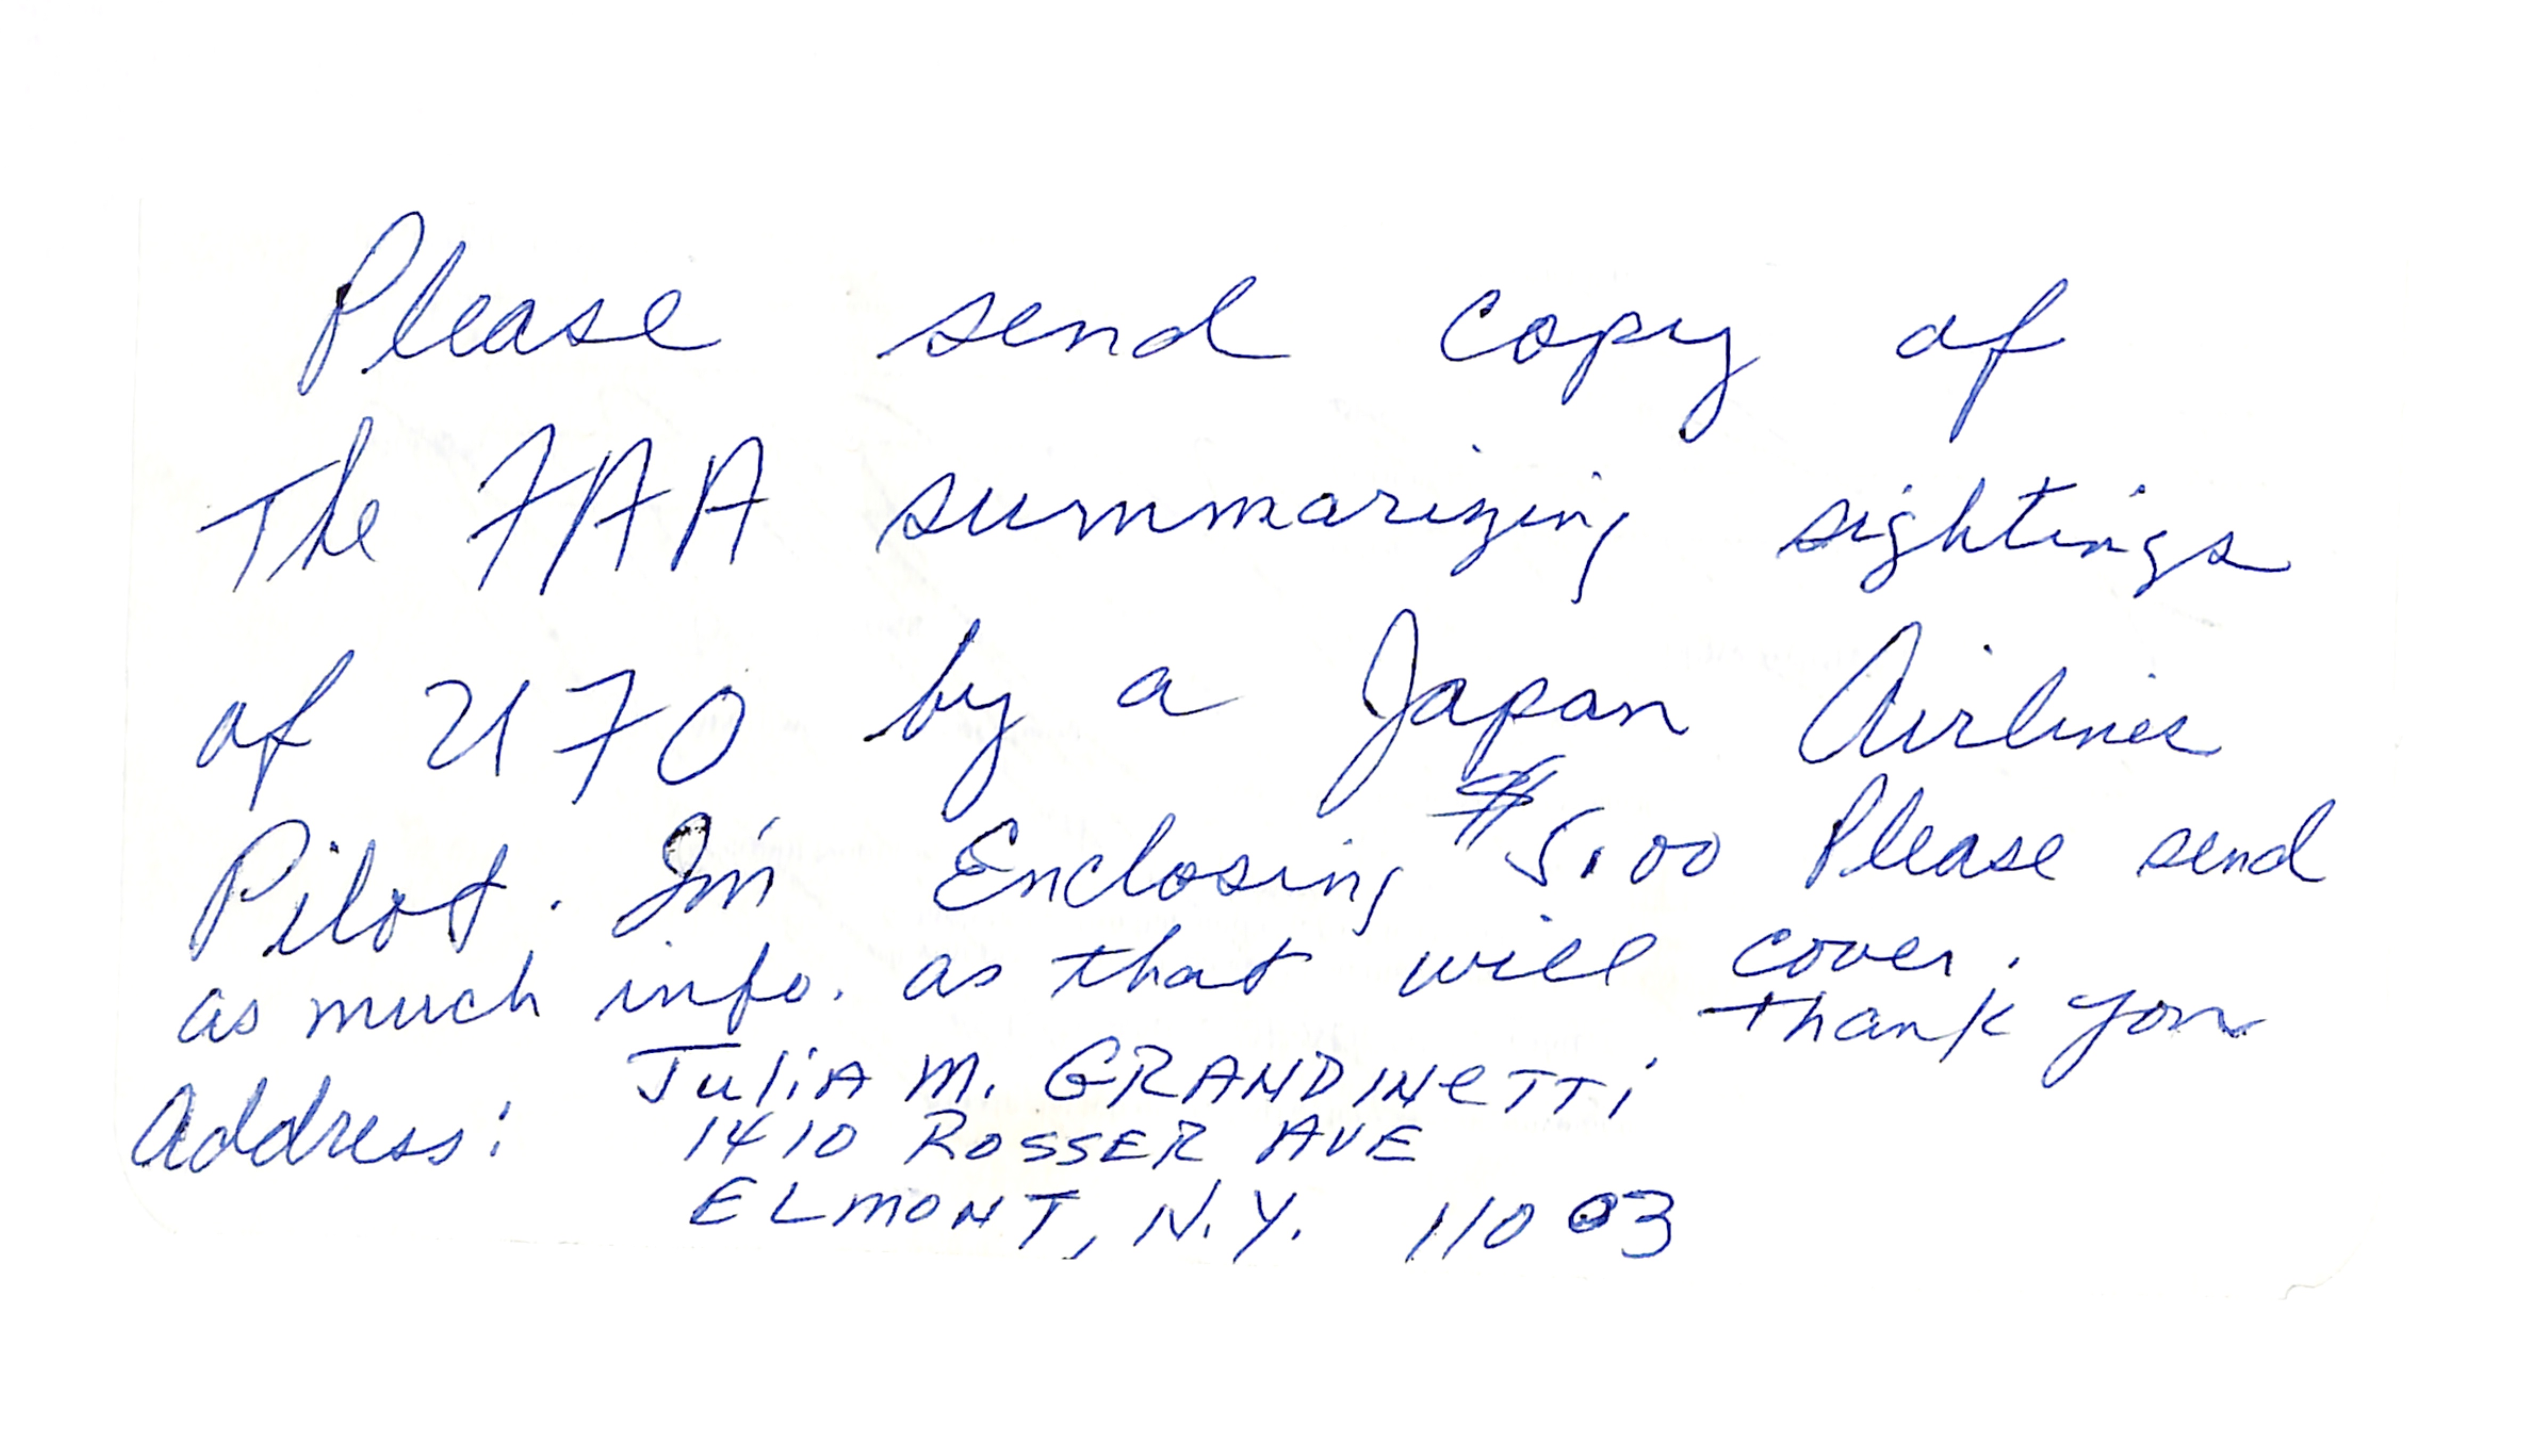 Please send copy of
The FAA summarizing sightings
of UFO by a Japan Airlines
Pilot. I'm Enclosing $5.00 Please send
as much info. as that will cover.
Thank you
Julia M. GRANDINETTI
Address: 1410 ROSSER AVE
ELMONT, N.Y. 11003